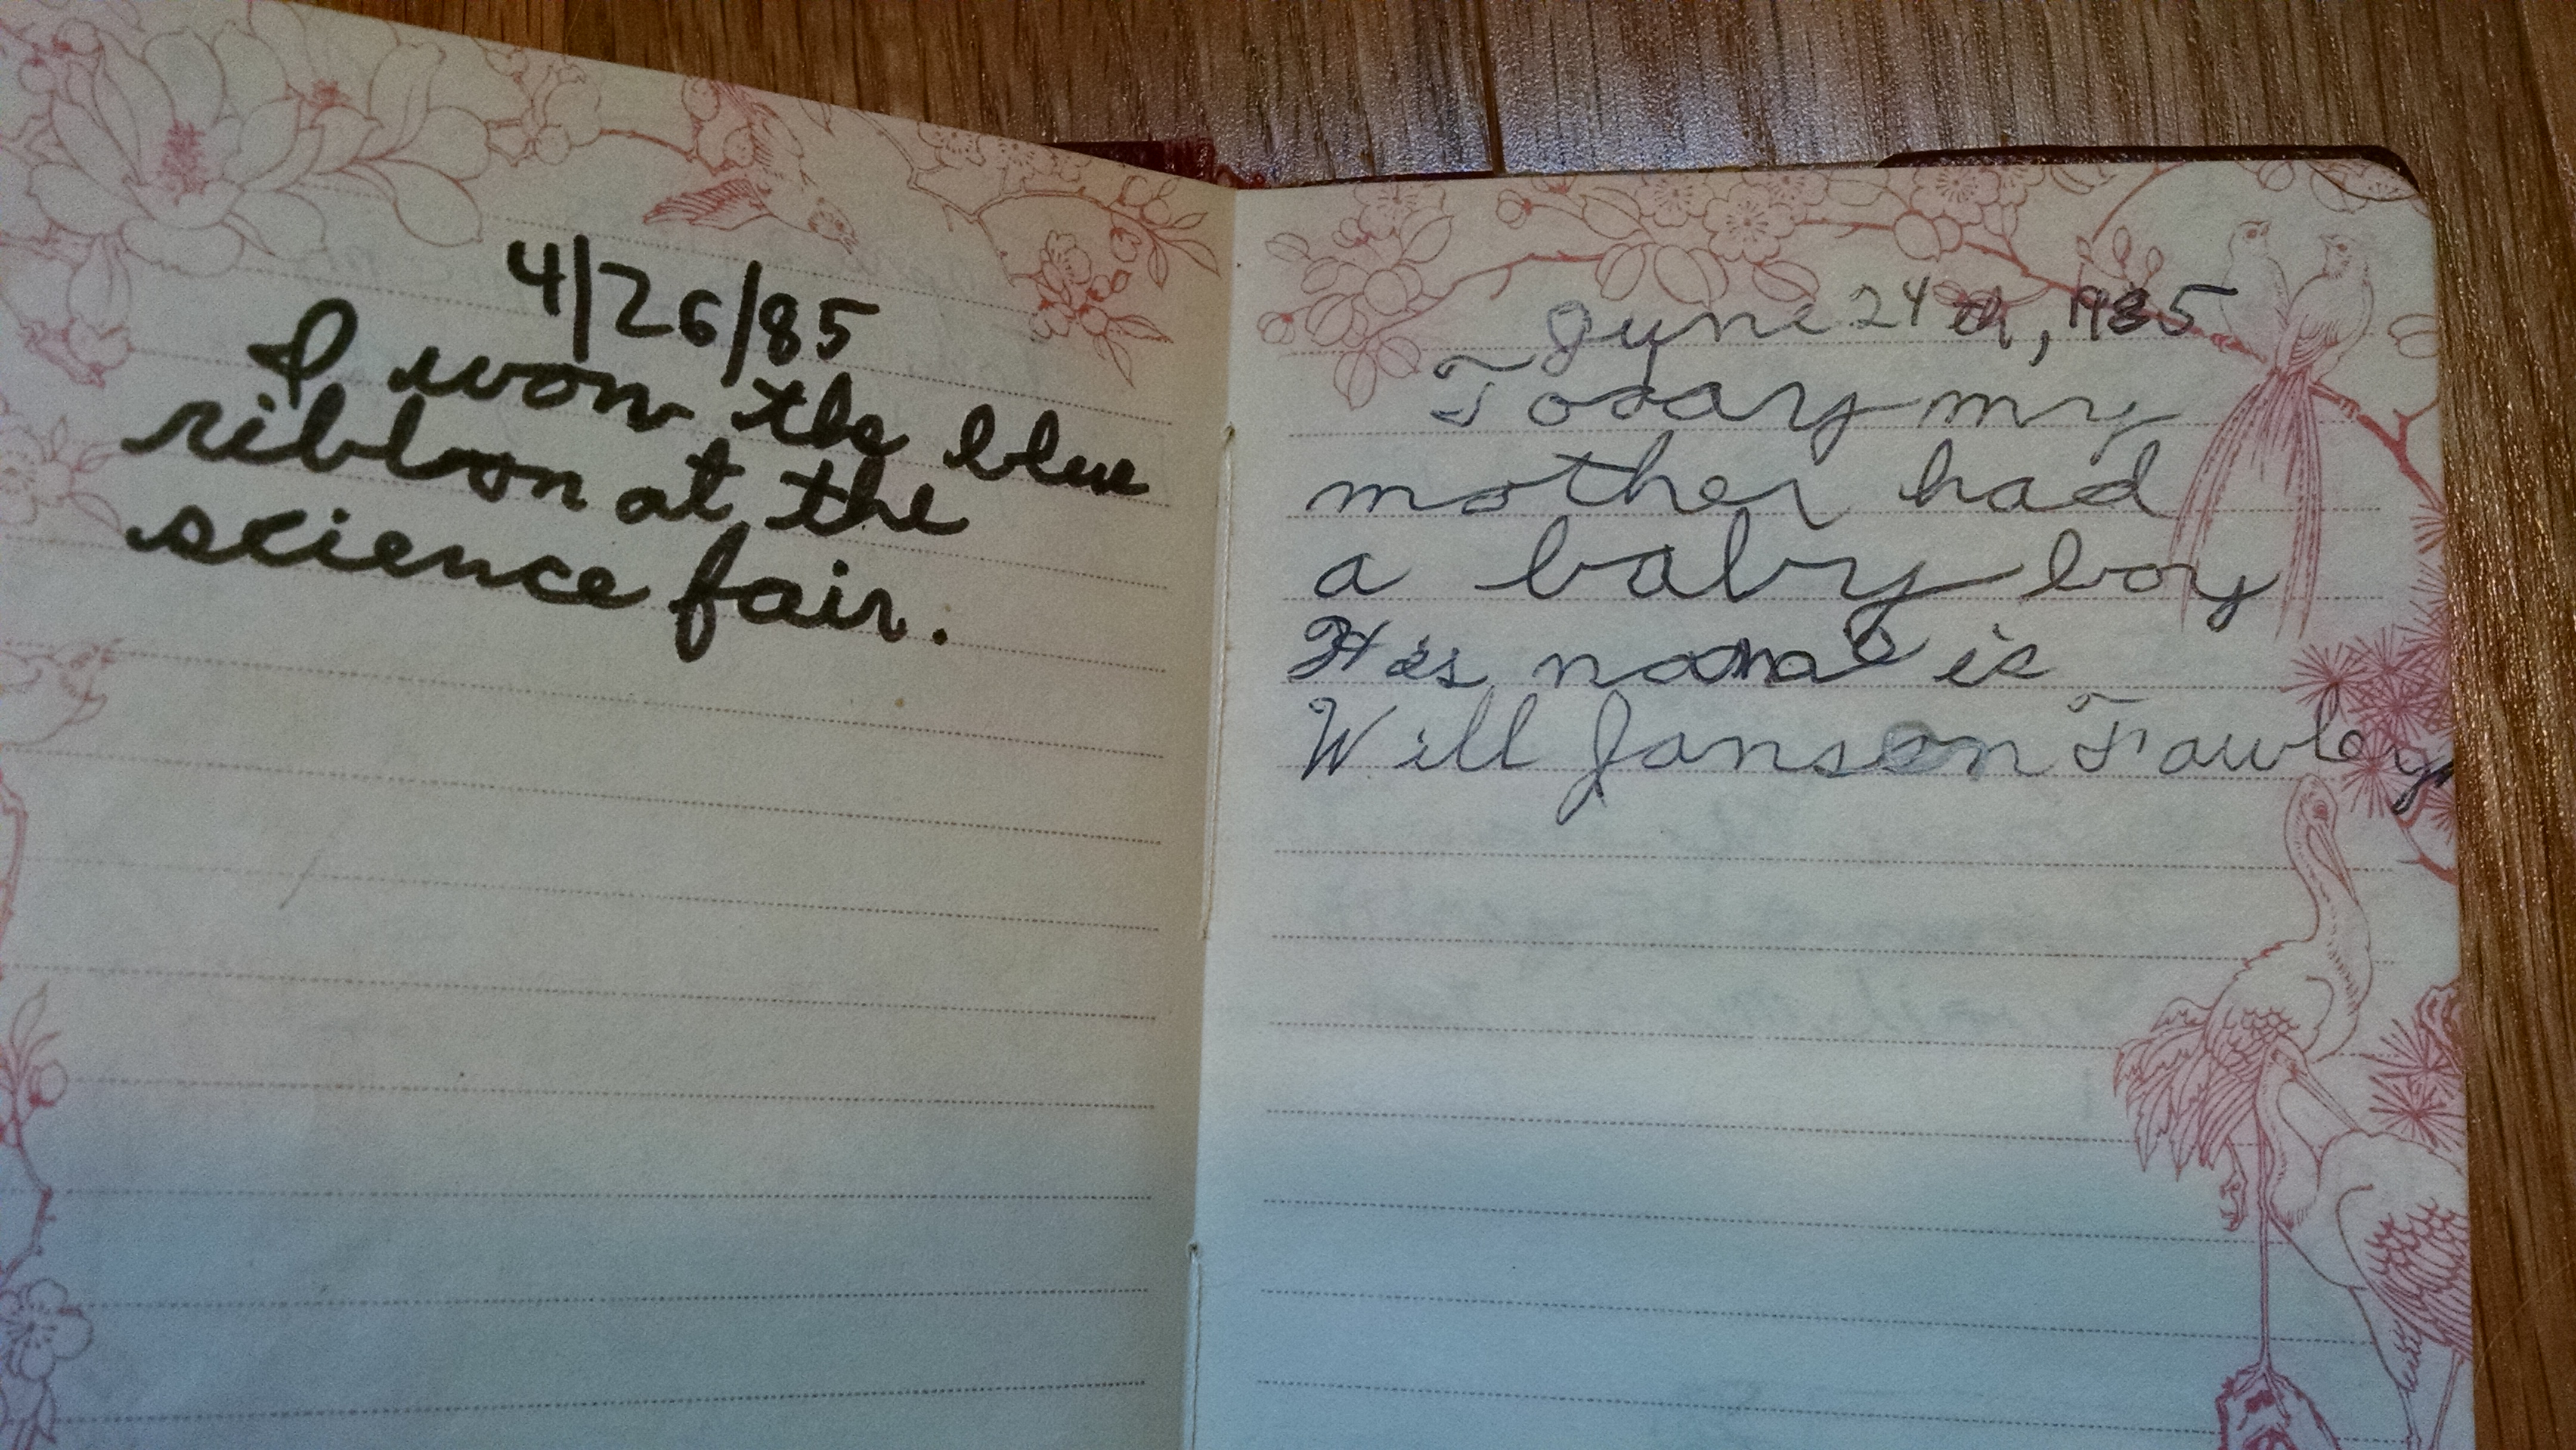 4/26/85
I won the blue
ribbon at the
science fair.
June 24th, 1985
Today my
mother had
a baby boy
His name is
Will Janson Fawley